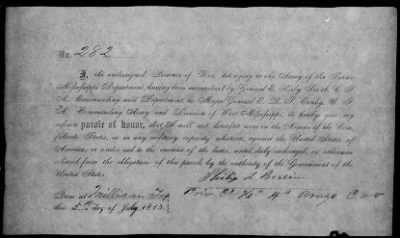 No. 282
I, the undersigned, Prisoner of War, belonging to the Army of the Trans-
Mississippi Department, having been surrendered by General E. Kirby Smith, C. S.
A., Commanding said Department, to Major General E. R. S. Canby, U. S.
A., Commanding Army and Division of West Mississippi, do hereby give my
solemn parole of honor, that I will not hereafter serve in the Armies of the Con-
federate States, or in any military capacity whatever, against the United States of
America, or render aid to the enemies of the latter, until duly exchanged, or otherwise
released from the obligations of this parole by the authority of the Government of the
United States.
Philip L
Done at Millican Tex
this 5th day of July 1865.